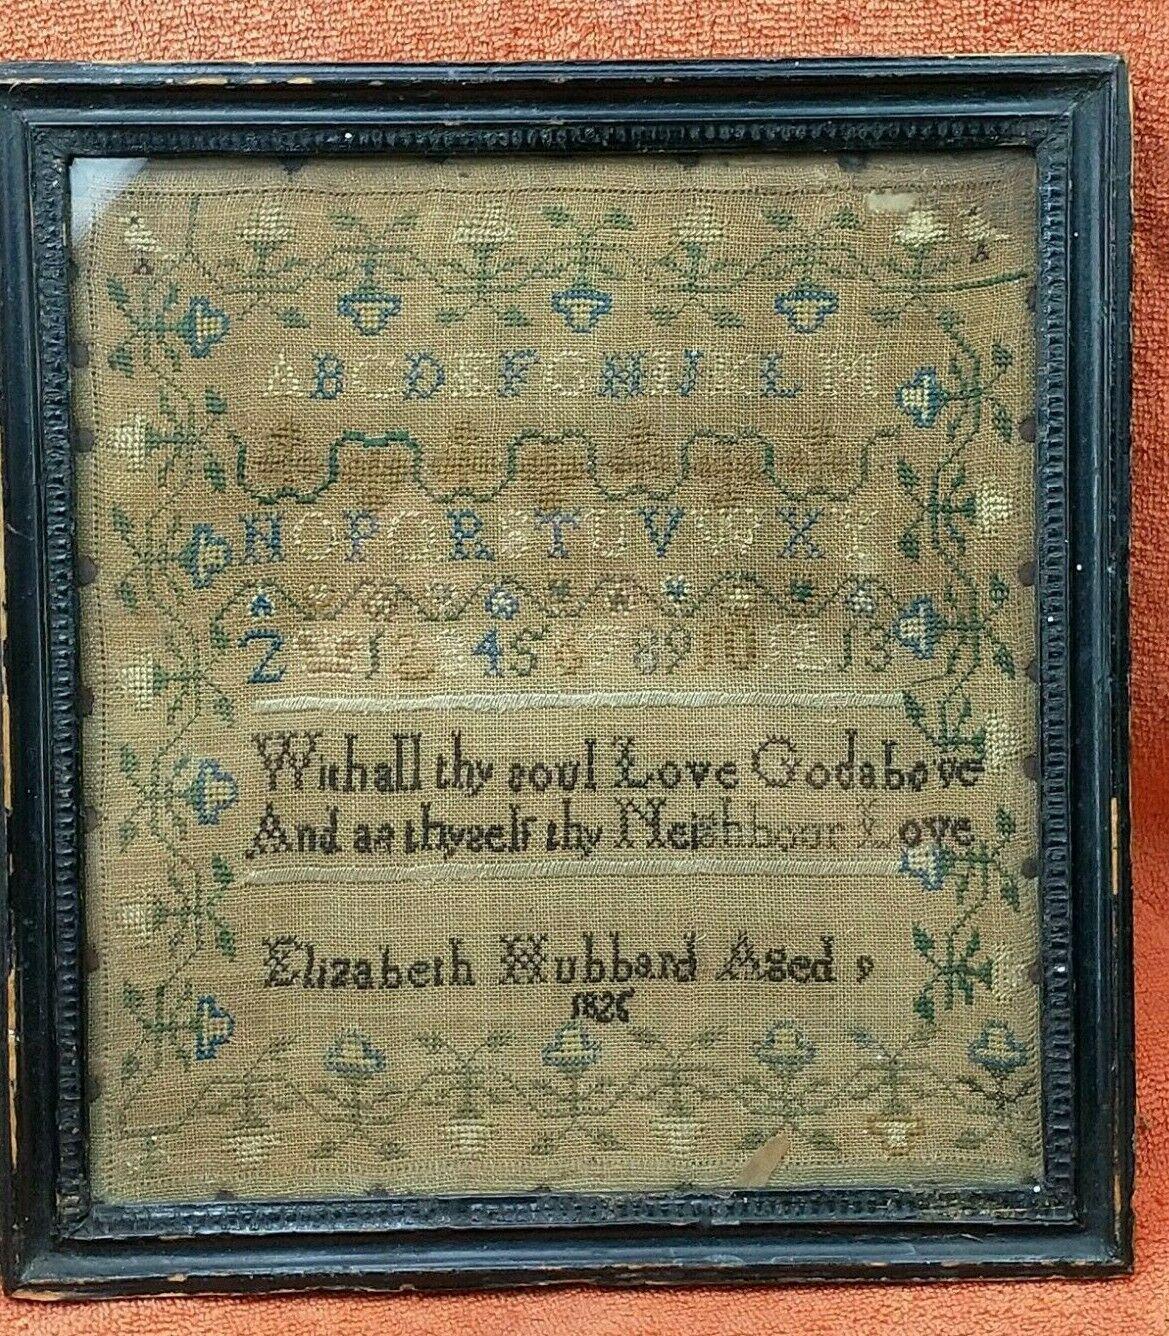 A B C D E F G H I J K L M
N O P Q R S T U V W X Y
Z 1 2 3 4 5 6 7 8 9 10 11 12 13
With all thy soul Love God above
And as thyself thy Neighbour Love
Elizabeth Hubbard Aged 9
1826